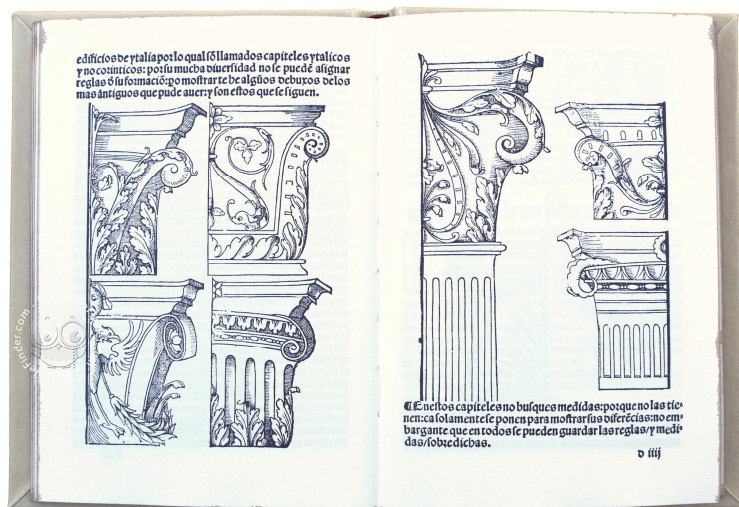 edificios de ytalia por lo qual sõ llamados capiteles ytalicos
y no corinticos: por su mucha diuersidad no se puedẽ asignar
reglas ð su formaciõ: po mostrarte he algũos debuxos delos
mas ãntiguos que pude auer: y son estos que se siguen.
¶ Enestos capiteles no busques medidas: porque no las tie-
nen: ca solamente se ponen para mostrar sus diferẽcias: no em-
bargante que en todos se pueden guardar las reglas/y medi-
das/sobredichas.
d iiij
Finder.com